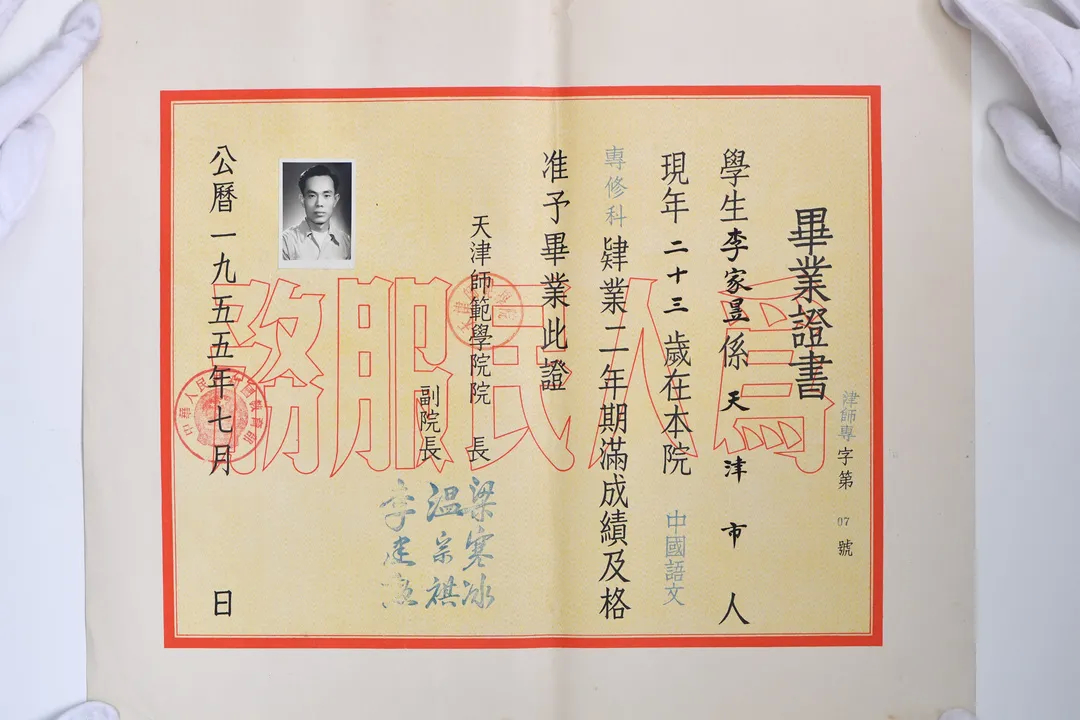 畢業證書
津師專字第07號
學生李家昱係天津市人
現年二十三歲在本院中國語文
專修科肄業二年期滿成績及格
准予畢業此證
天津師範學院院長 梁寒冰
副院長 温宗祺
公曆一九五五年七月 日
爲人民服務